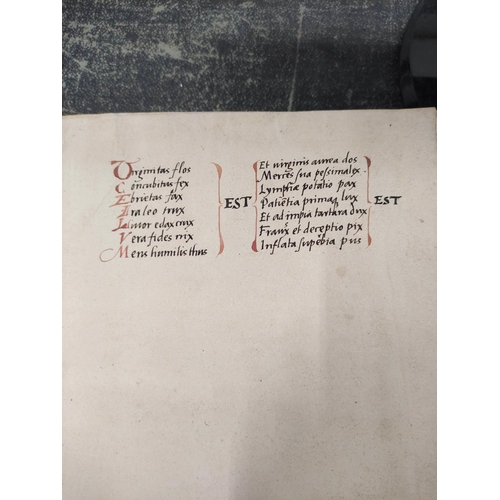 Virginitas flos Et virginis aurea dos
Concubitus fex Merces sua pessima lex
Ebrietas fax Lymphæ potatio pax
Ira leo trux EST Patiẽtia primaq lux EST
Livor edax crux Et ad impia tartara dux
Vera fides nix Fraux et deceptio pix
Mens humilis thus Inflata supẽbia pus